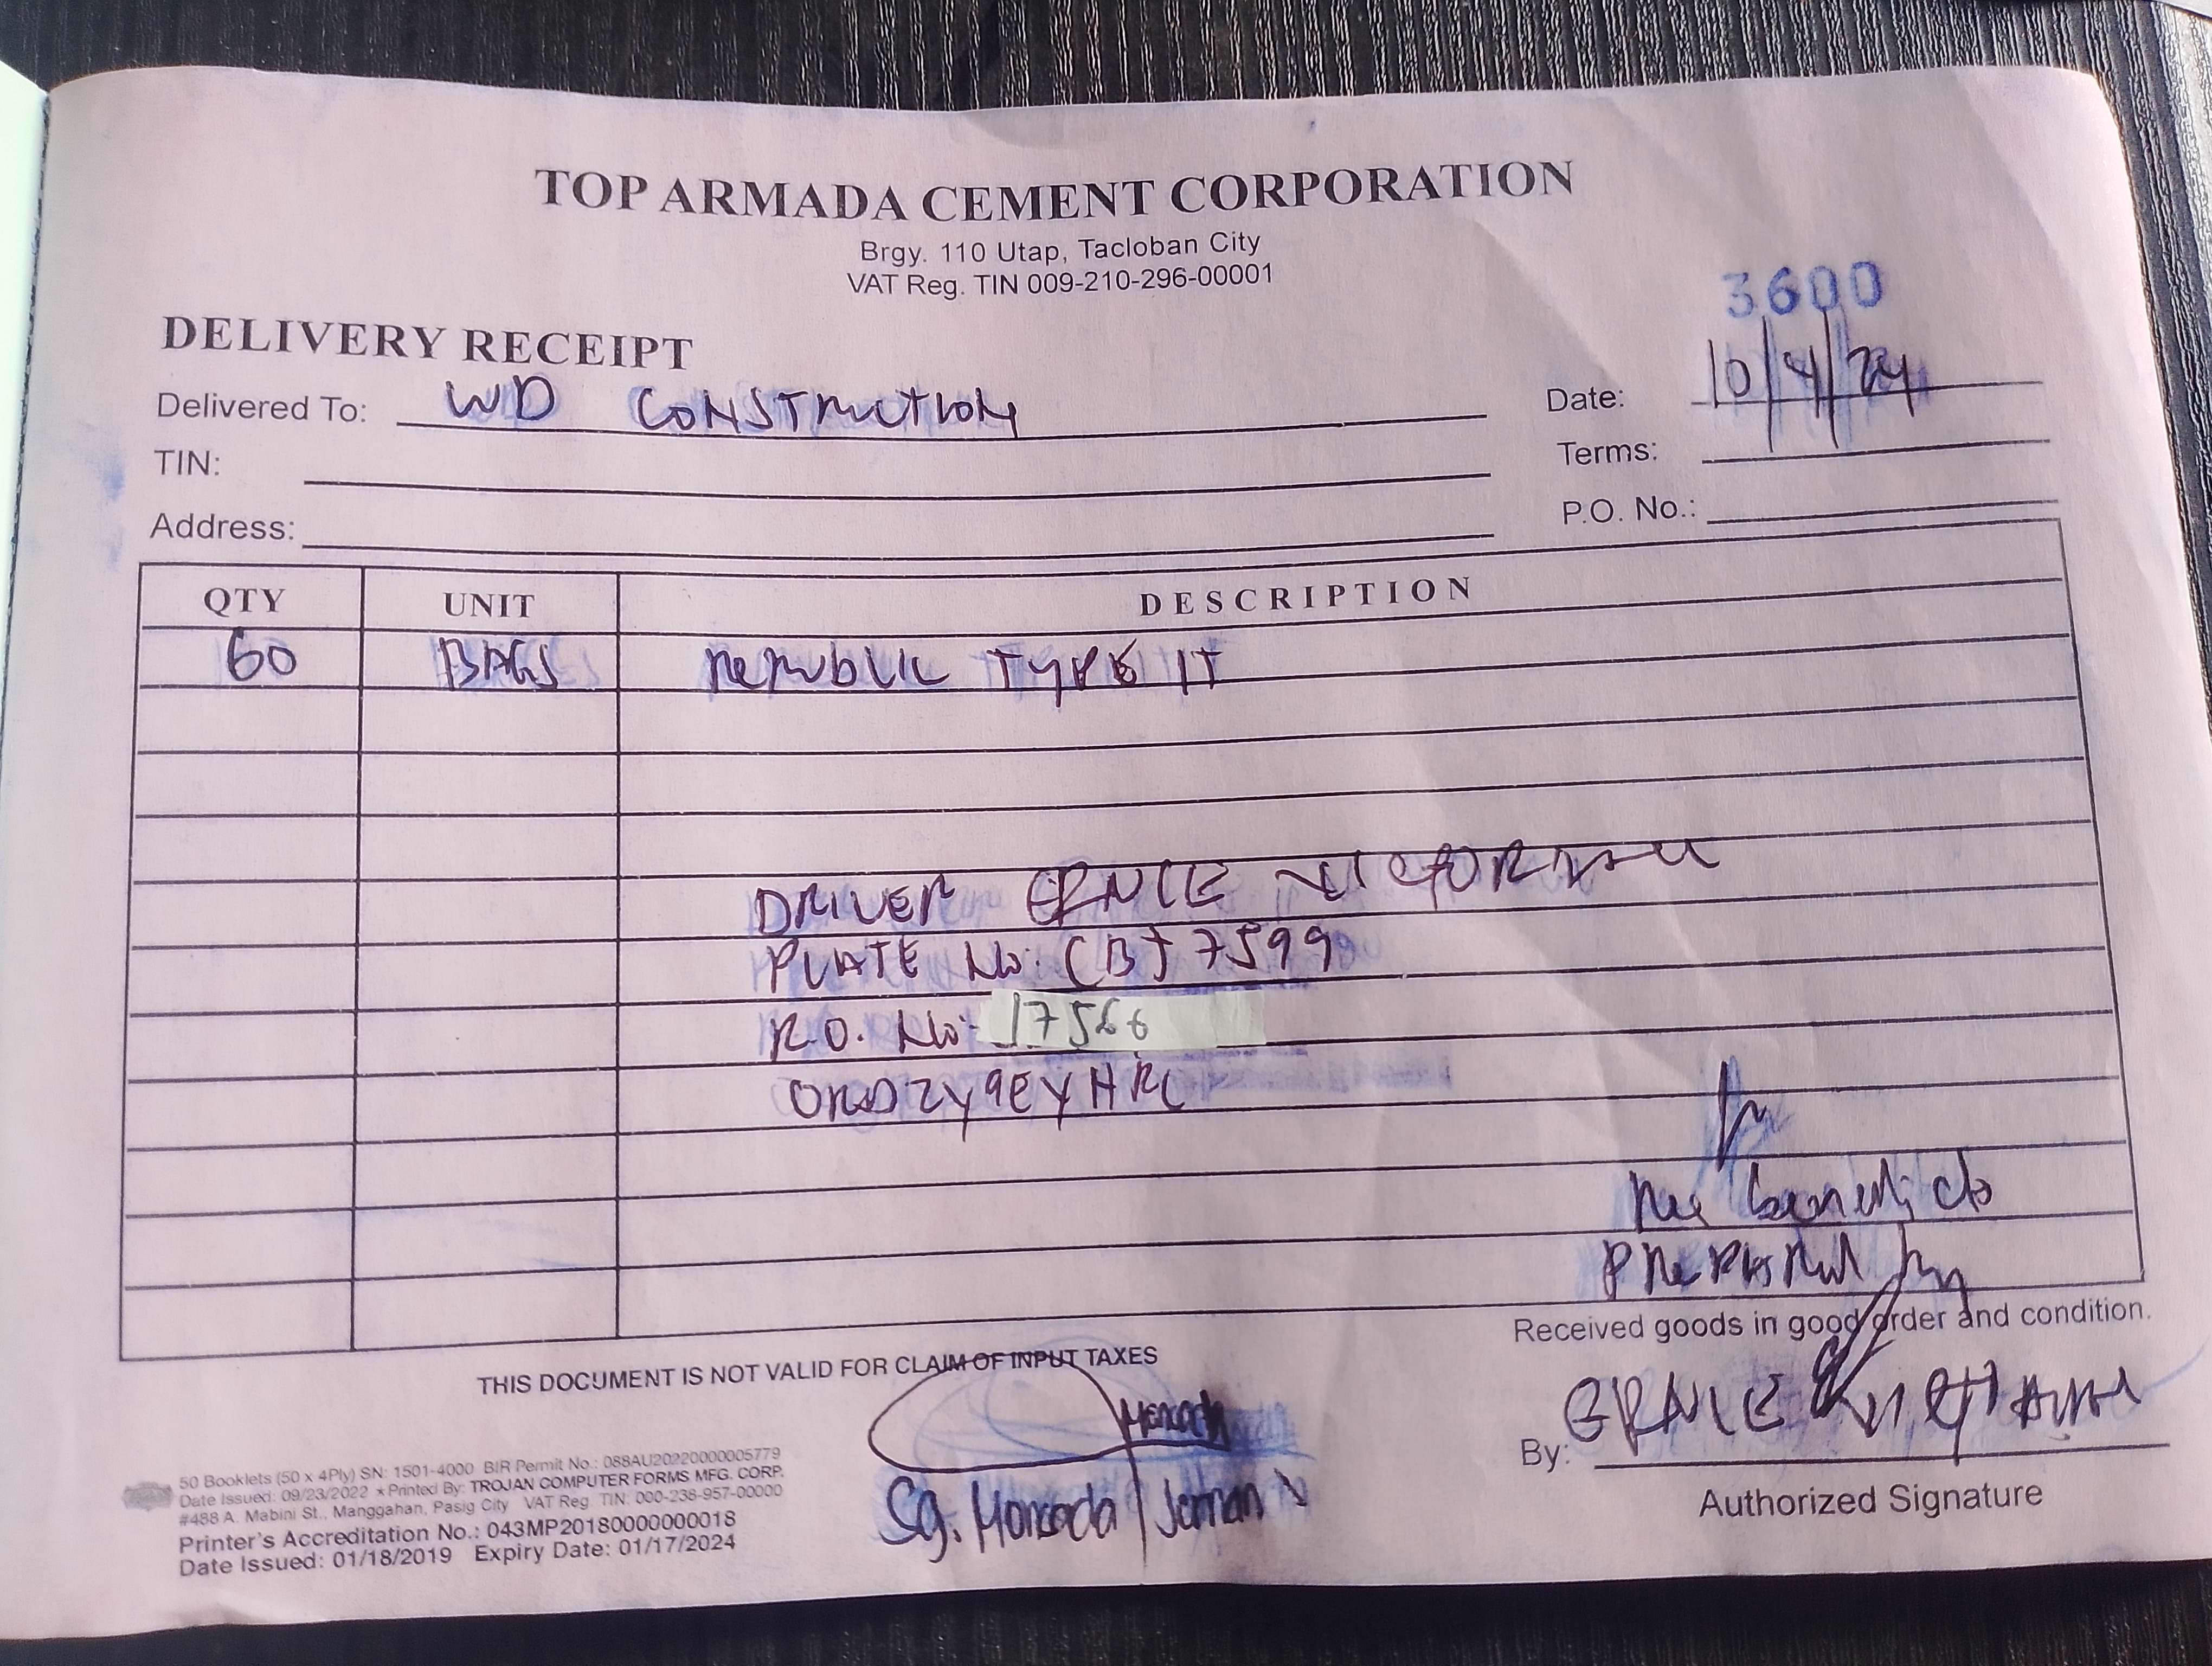 TOP ARMADA CEMENT CORPORATION
Brgy. 110 Utap, Tacloban City
VAT Reg. TIN 009-210-296-00001
3600
DELIVERY RECEIPT
Delivered To: WD CONSTRUCTION
Date: 10/4/24
TIN:
Terms:
Address:
P.O. No.:
QTY UNIT DESCRIPTION
60 BAGS REPUBLIC TYPE 1T
DRIVER ERNIE
PLATE No: CBJ 7599
R.O. No: 17566
ORDZY9EYHRC
Benedicto
PREPARED by
Received goods in good order and condition.
THIS DOCUMENT IS NOT VALID FOR CLAIM OF INPUT TAXES
Moncada
ERNIE
By:
Sg. Moncada / Jeman
Authorized Signature
50 Booklets (50 x 4Ply) SN: 1501-4000 BIR Permit No.: 088AU20220000005779
Date Issued: 09/23/2022 * Printed By: TROJAN COMPUTER FORMS MFG. CORP.
#488 A. Mabini St., Manggahan, Pasig City VAT Reg. TIN: 000-238-957-00000
Printer's Accreditation No.: 043MP20180000000018
Date Issued: 01/18/2019 Expiry Date: 01/17/2024